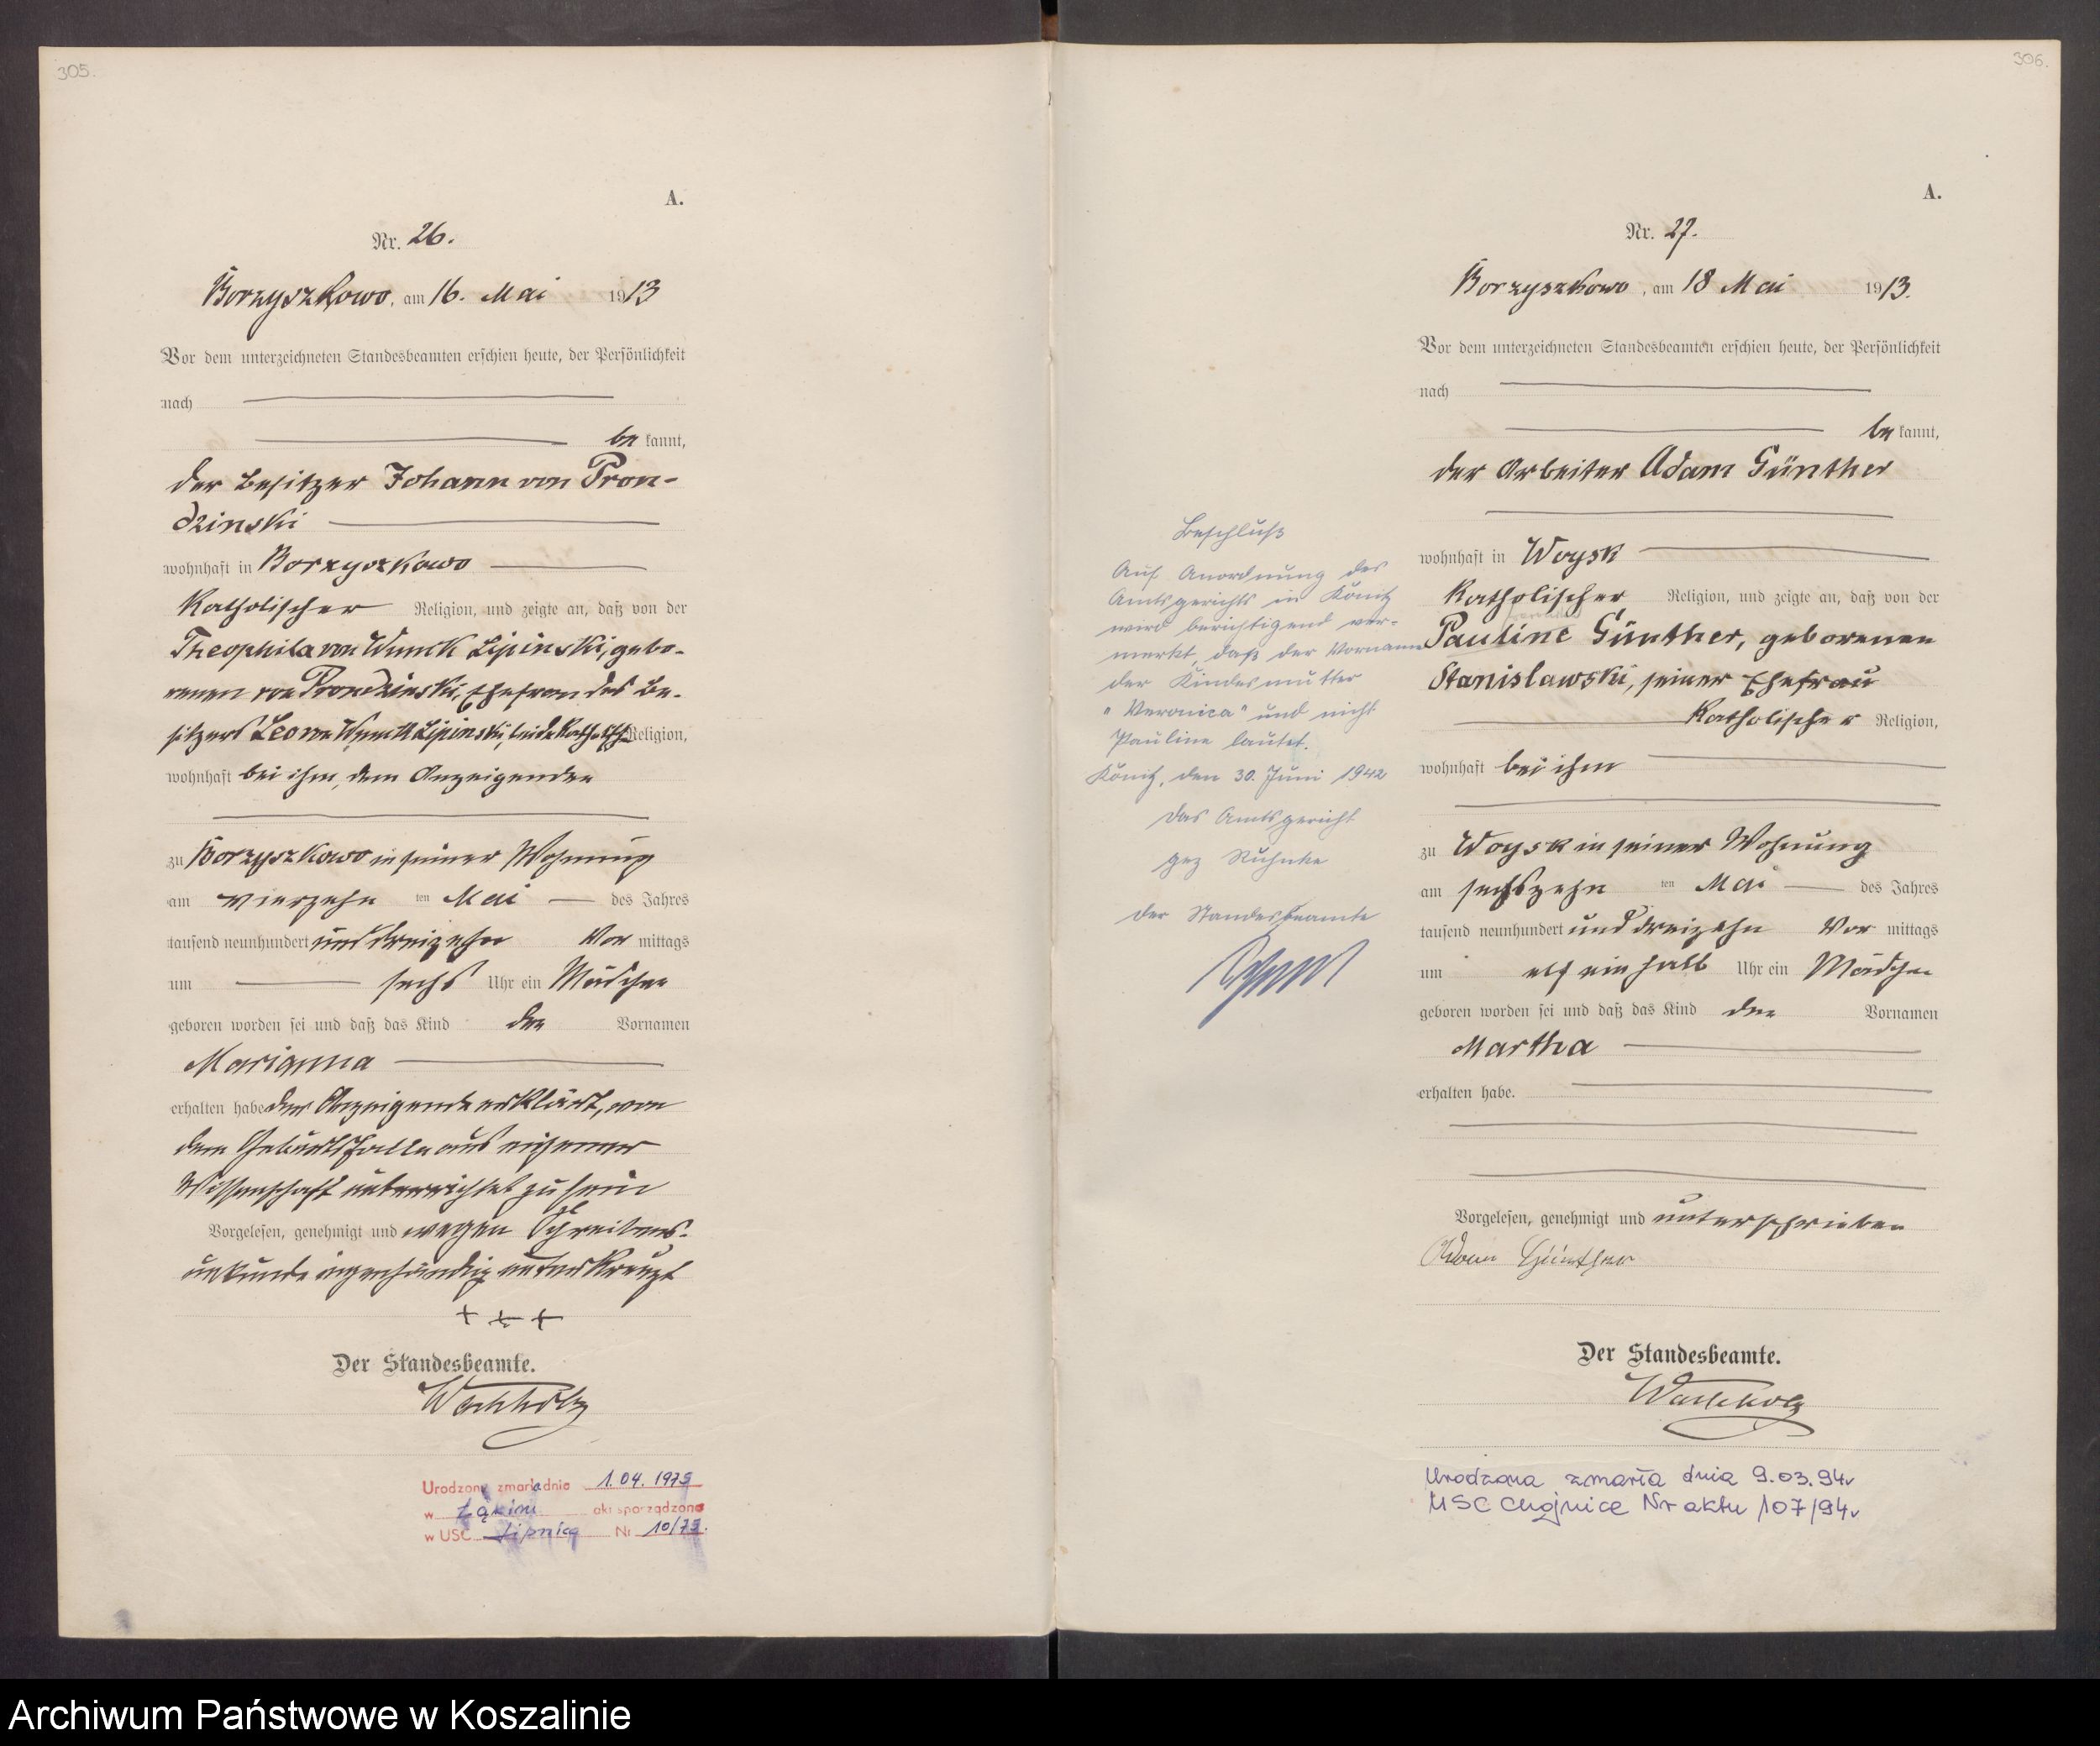 305.
A.
Nr. 26.
Borzyszkowo, am 16. Mai 1913
Vor dem unterzeichneten Standesbeamten erschien heute, der Persönlichkeit
nach
be kannt,
der Besitzer Johann von Pron-
dzinski
wohnhaft in Borzyszkowo
Katholischer Religion, und zeigte an, daß von der
Theophila von Wnuck Lipinski, gebo-
renen von Prondzinski, Ehefrau des Be-
sitzers Leo von Wnuck Lipinski, beide Katholisch Religion,
wohnhaft bei ihm, dem Anzeigenden
zu Borzyszkowo in seiner Wohnung
am vierzehn ten Mai des Jahres
tausend neunhundert und dreizehn Vor mittags
um sechs Uhr ein Mädchen
geboren worden sei und daß das Kind den Vornamen
Marianna
erhalten habe der Anzeigende erklärt, von
dem Geburtsfalle aus eigener
Wissenschaft unterrichtet zu sein
Vorgelesen, genehmigt und wegen Schreibens-
unkunde eigenhändig unterkreuzt
+ + +
Der Standesbeamte.
Wachholz
Urodzony zmarła dnia 1.04.1975
w Łąkim akt sporządzono
w USC Lipnica Nr 10/75.
306.
A.
Nr. 27.
Borzyszkowo, am 18 Mai 1913.
Vor dem unterzeichneten Standesbeamten erschien heute, der Persönlichkeit
nach
be kannt,
der Arbeiter Adam Günther
wohnhaft in Woysk
Katholischer Religion, und zeigte an, daß von der
Pauline Günther, geborenen
Stanislawski, seiner Ehefrau
Katholischer Religion,
wohnhaft bei ihm
zu Woysk in seiner Wohnung
am sechszehn ten Mai des Jahres
tausend neunhundert und dreizehn Vor mittags
um elf ein halb Uhr ein Mädchen
geboren worden sei und daß das Kind den Vornamen
Martha
erhalten habe.
Vorgelesen, genehmigt und unterschrieben
Adam Günther
Der Standesbeamte.
Wachholz
Urodzona zmarła dnia 9.03.94r
USC Chojnice Nr aktu 107/94r
Beschluß
Auf Anordnung des
Amtsgerichts in Könitz
wird berichtigend ver-
merkt, daß der Vorname
der Kindesmutter
"Veronica" und nicht
Pauline lautet.
Könitz, den 30. Juni 1942
Das Amtsgericht
gez Kuhnke
Der Standesbeamte
Archiwum Państwowe w Koszalinie